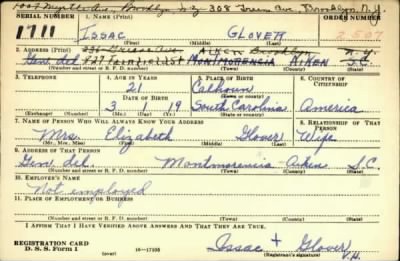 1007 Myrtle Ave. Brooklyn N.Y. 308 Ave. Brooklyn N.Y.
SERIAL NUMBER 1. NAME (Print) ORDER NUMBER
1711 ISSAC GLOVER 2507
(First) (Middle) (Last)
2. ADDRESS (Print) AIKEN Brooklyn N.Y.
Gen. del. 827 FAIRFIELD ST MONTMORENCIA AIKEN S.C.
(Number and street or R. F. D. number) (Town) (County) (State)
3. TELEPHONE 4. AGE IN YEARS 5. PLACE OF BIRTH 6. COUNTRY OF CITIZENSHIP
21 Calhoun
DATE OF BIRTH (Town or county)
3 1 19 South Carolina America
(Exchange) (Number) (Mo.) (Day) (Yr.) (State or country)
7. NAME OF PERSON WHO WILL ALWAYS KNOW YOUR ADDRESS 8. RELATIONSHIP OF THAT PERSON
Mrs. Elizabeth Glover Wife
(Mr., Mrs., Miss) (First) (Middle) (Last)
9. ADDRESS OF THAT PERSON
Gen. del. Montmorencia Aiken S.C.
(Number and street or R. F. D. number) (Town) (County) (State)
10. EMPLOYER'S NAME
Not employed
11. PLACE OF EMPLOYMENT OR BUSINESS
(Number and street or R. F. D. number) (Town) (County) (State)
I AFFIRM THAT I HAVE VERIFIED ABOVE ANSWERS AND THAT THEY ARE TRUE.
REGISTRATION CARD
D. S. S. Form 1 (over) 16—17105 Issac + Glover
(Registrant's signature) V.H.